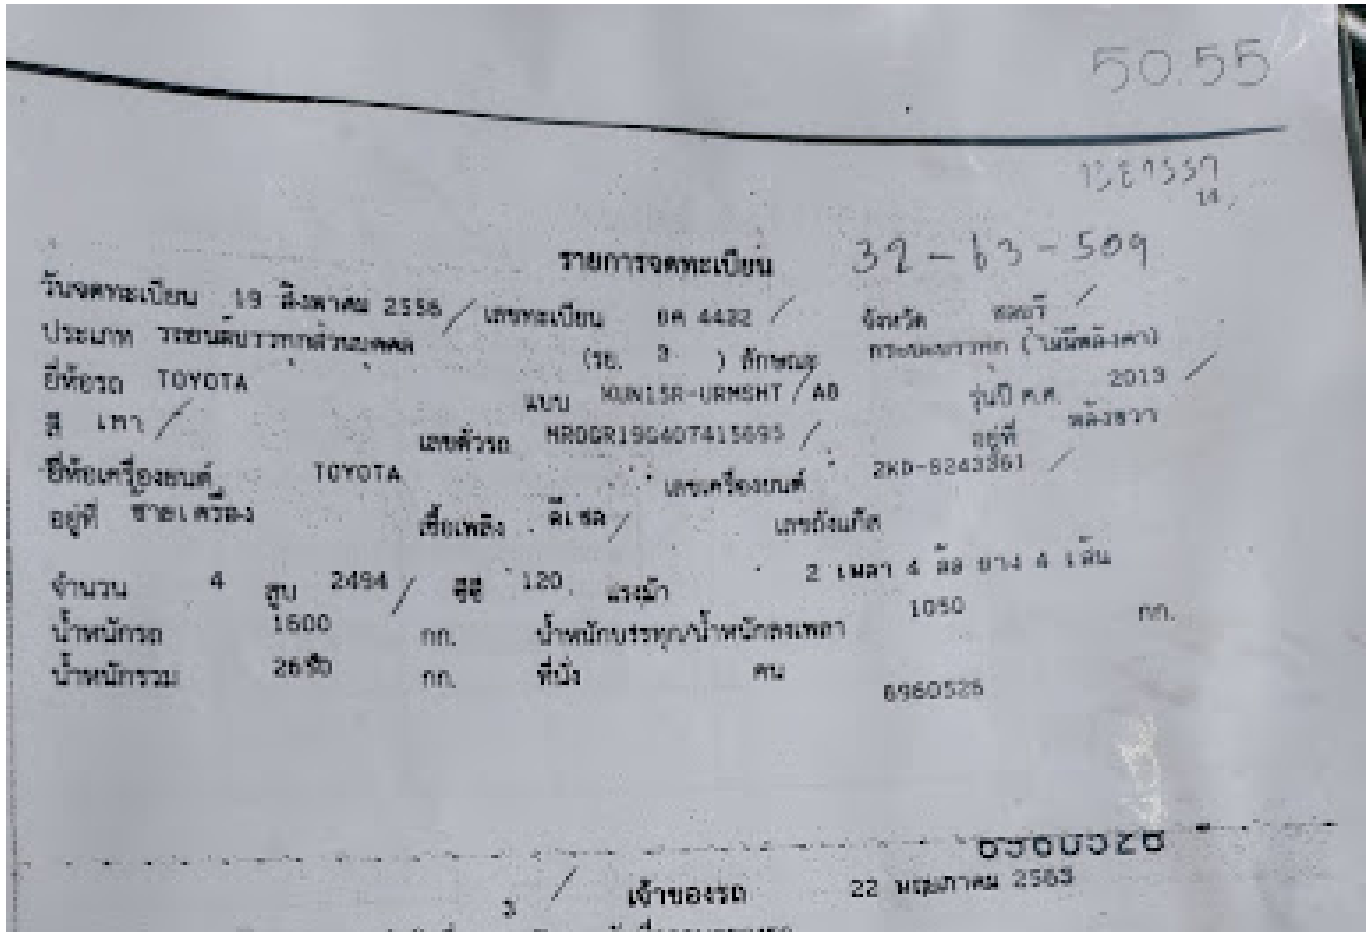 50.55
รายการจดทะเบียน 32-63-509
วันจดทะเบียน 19 สิงหาคม 2556 / เลขทะเบียน 4422 / จังหวัด ชลบุรี /
ประเภท รถยนต์บรรทุกส่วนบุคคล (รย. 3 ) ลักษณะ กระบะบรรทุก (ไม่มีหลังคา)
ยี่ห้อรถ TOYOTA แบบ KUN15R-URMSHT / A0 รุ่นปี ค.ศ. 2013 /
สี เทา / เลขตัวรถ MR0GR19G407415695 / อยู่ที่ หลังขวา
ยี่ห้อเครื่องยนต์ TOYOTA เลขเครื่องยนต์ 2KD-S243361 /
อยู่ที่ ซ้ายเครื่อง เชื้อเพลิง ดีเซล / เลขถังแก๊ส
จำนวน 4 สูบ 2494 / ซีซี 120 แรงม้า 2 เพลา 4 ล้อ ยาง 4 เส้น
น้ำหนักรถ 1600 กก. น้ำหนักบรรทุก/น้ำหนักลงเพลา 1050 กก.
น้ำหนักรวม 2650 กก. ที่นั่ง คน
6960526
3 / เจ้าของรถ 22 พฤษภาคม 2563